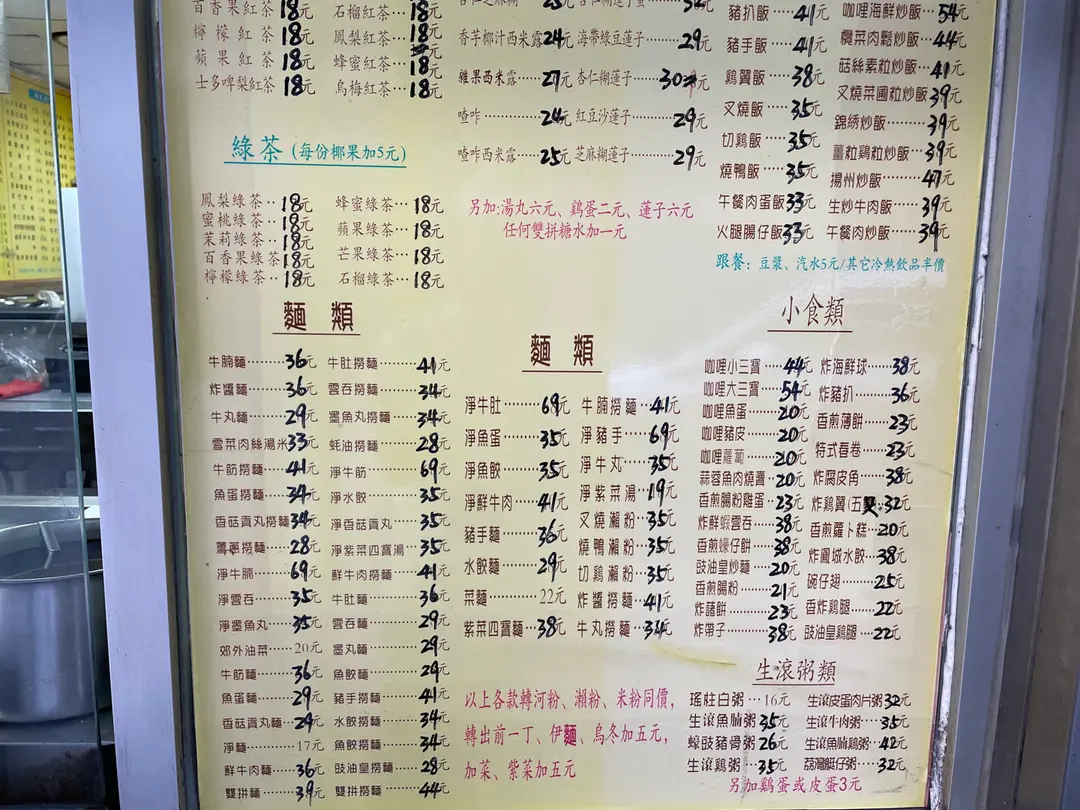 百香果紅茶 18元 石榴紅茶…18元
檸檬紅茶 18元 鳳梨紅茶…18元
蘋果紅茶 18元 蜂蜜紅茶…18元
士多啤梨紅茶 18元 烏梅紅茶…18元
綠茶 (每份椰果加5元)
鳳梨綠茶‥18元 蜂蜜綠茶‥18元
蜜桃綠茶‥18元 蘋果綠茶‥18元
茉莉綠茶‥18元 芒果綠茶‥18元
百香果綠茶18元 石榴綠茶‥18元
檸檬綠茶‥18元
香芋椰汁西米露24元 海帶綠豆蓮子…29元
雜果西米露…27元 杏仁糊蓮子…30元
喳咋…24元 紅豆沙蓮子…29元
喳咋西米露…25元 芝麻糊蓮子…29元
另加:湯丸六元、鷄蛋二元、蓮子六元
任何雙拼糖水加一元
豬扒飯…41元 咖哩海鮮炒飯…54元
豬手飯…41元 欖菜肉鬆炒飯…44元
鷄翼飯…38元 菇絲素粒炒飯…41元
叉燒飯…35元 叉燒菜圃粒炒飯39元
切鷄飯…35元 錦綉炒飯…39元
燒鴨飯…35元 薑粒鷄粒炒飯…39元
午餐肉蛋飯33元 揚州炒飯…47元
火腿腸仔飯33元 生炒牛肉飯…39元
午餐肉炒飯…39元
跟餐：豆漿、汽水5元/其它冷熱飲品半價
麵類
牛腩麵…36元 牛肚撈麵…41元
炸醬麵…36元 雲吞撈麵…34元
牛丸麵…29元 墨魚丸撈麵…34元
雪菜肉絲湯米33元 蚝油撈麵…28元
牛筋撈麵…41元 淨牛筋…69元
魚蛋撈麵…34元 淨水餃…35元
香菇貢丸撈麵34元 淨香菇貢丸…35元
撈麵…28元 淨紫菜四寶湯…35元
淨牛腩…69元 鮮牛肉撈麵…41元
淨雲吞…35元 牛肚麵…36元
淨墨魚丸…35元 雲吞麵…29元
郊外油菜…20元 墨丸麵…29元
牛筋麵…36元 魚餃麵…29元
魚蛋麵…29元 豬手撈麵…41元
香菇貢丸麵…29元 水餃撈麵…34元
淨麵…17元 魚餃撈麵…34元
鮮牛肉麵…36元 豉油皇撈麵…28元
雙拼麵…39元 雙拼撈麵…44元
麵類
淨牛肚…69元 牛腩撈麵…41元
淨魚蛋…35元 淨豬手…69元
淨魚餃…35元 淨牛丸…35元
淨鮮牛肉…41元 淨紫菜湯…19元
豬手麵…36元 叉燒瀨粉…35元
水餃麵…29元 燒鴨瀨粉…35元
菜麵…22元 切鷄瀨粉…35元
紫菜四寶麵…38元 炸醬撈麵…41元
牛丸撈麵…34元
以上各款轉河粉、瀨粉、米粉同價，
轉出前一丁、伊麵、烏冬加五元，
加菜、紫菜加五元
小食類
咖哩小三寶…44元 炸海鮮球…38元
咖哩大三寶…54元 炸豬扒…36元
咖哩魚蛋…20元 香煎薄餅…23元
咖哩豬皮…20元 特式春卷…23元
咖哩蘿蔔…20元 炸腐皮角…38元
蒜蓉魚肉燒賣…20元 炸鷄翼(五隻)…32元
香煎腸粉雞蛋…23元 香煎蘿卜糕…20元
炸鮮蝦雲吞…38元 炸鳳城水餃…38元
香煎蠔仔餅…38元 碗仔翅…25元
豉油皇炒麵…20元 香炸鷄腿…22元
香煎腸粉…21元 豉油皇鷄腿…22元
炸藕餅…23元
炸帶子…38元
生滾粥類
瑤柱白粥…16元 生滾皮蛋肉片粥32元
生滾魚腩粥35元 生滾牛肉粥…35元
蠔豉豬骨粥26元 生滾魚腩鷄粥…42元
生滾鷄粥…35元 荔灣艇仔粥…32元
另加鷄蛋或皮蛋3元